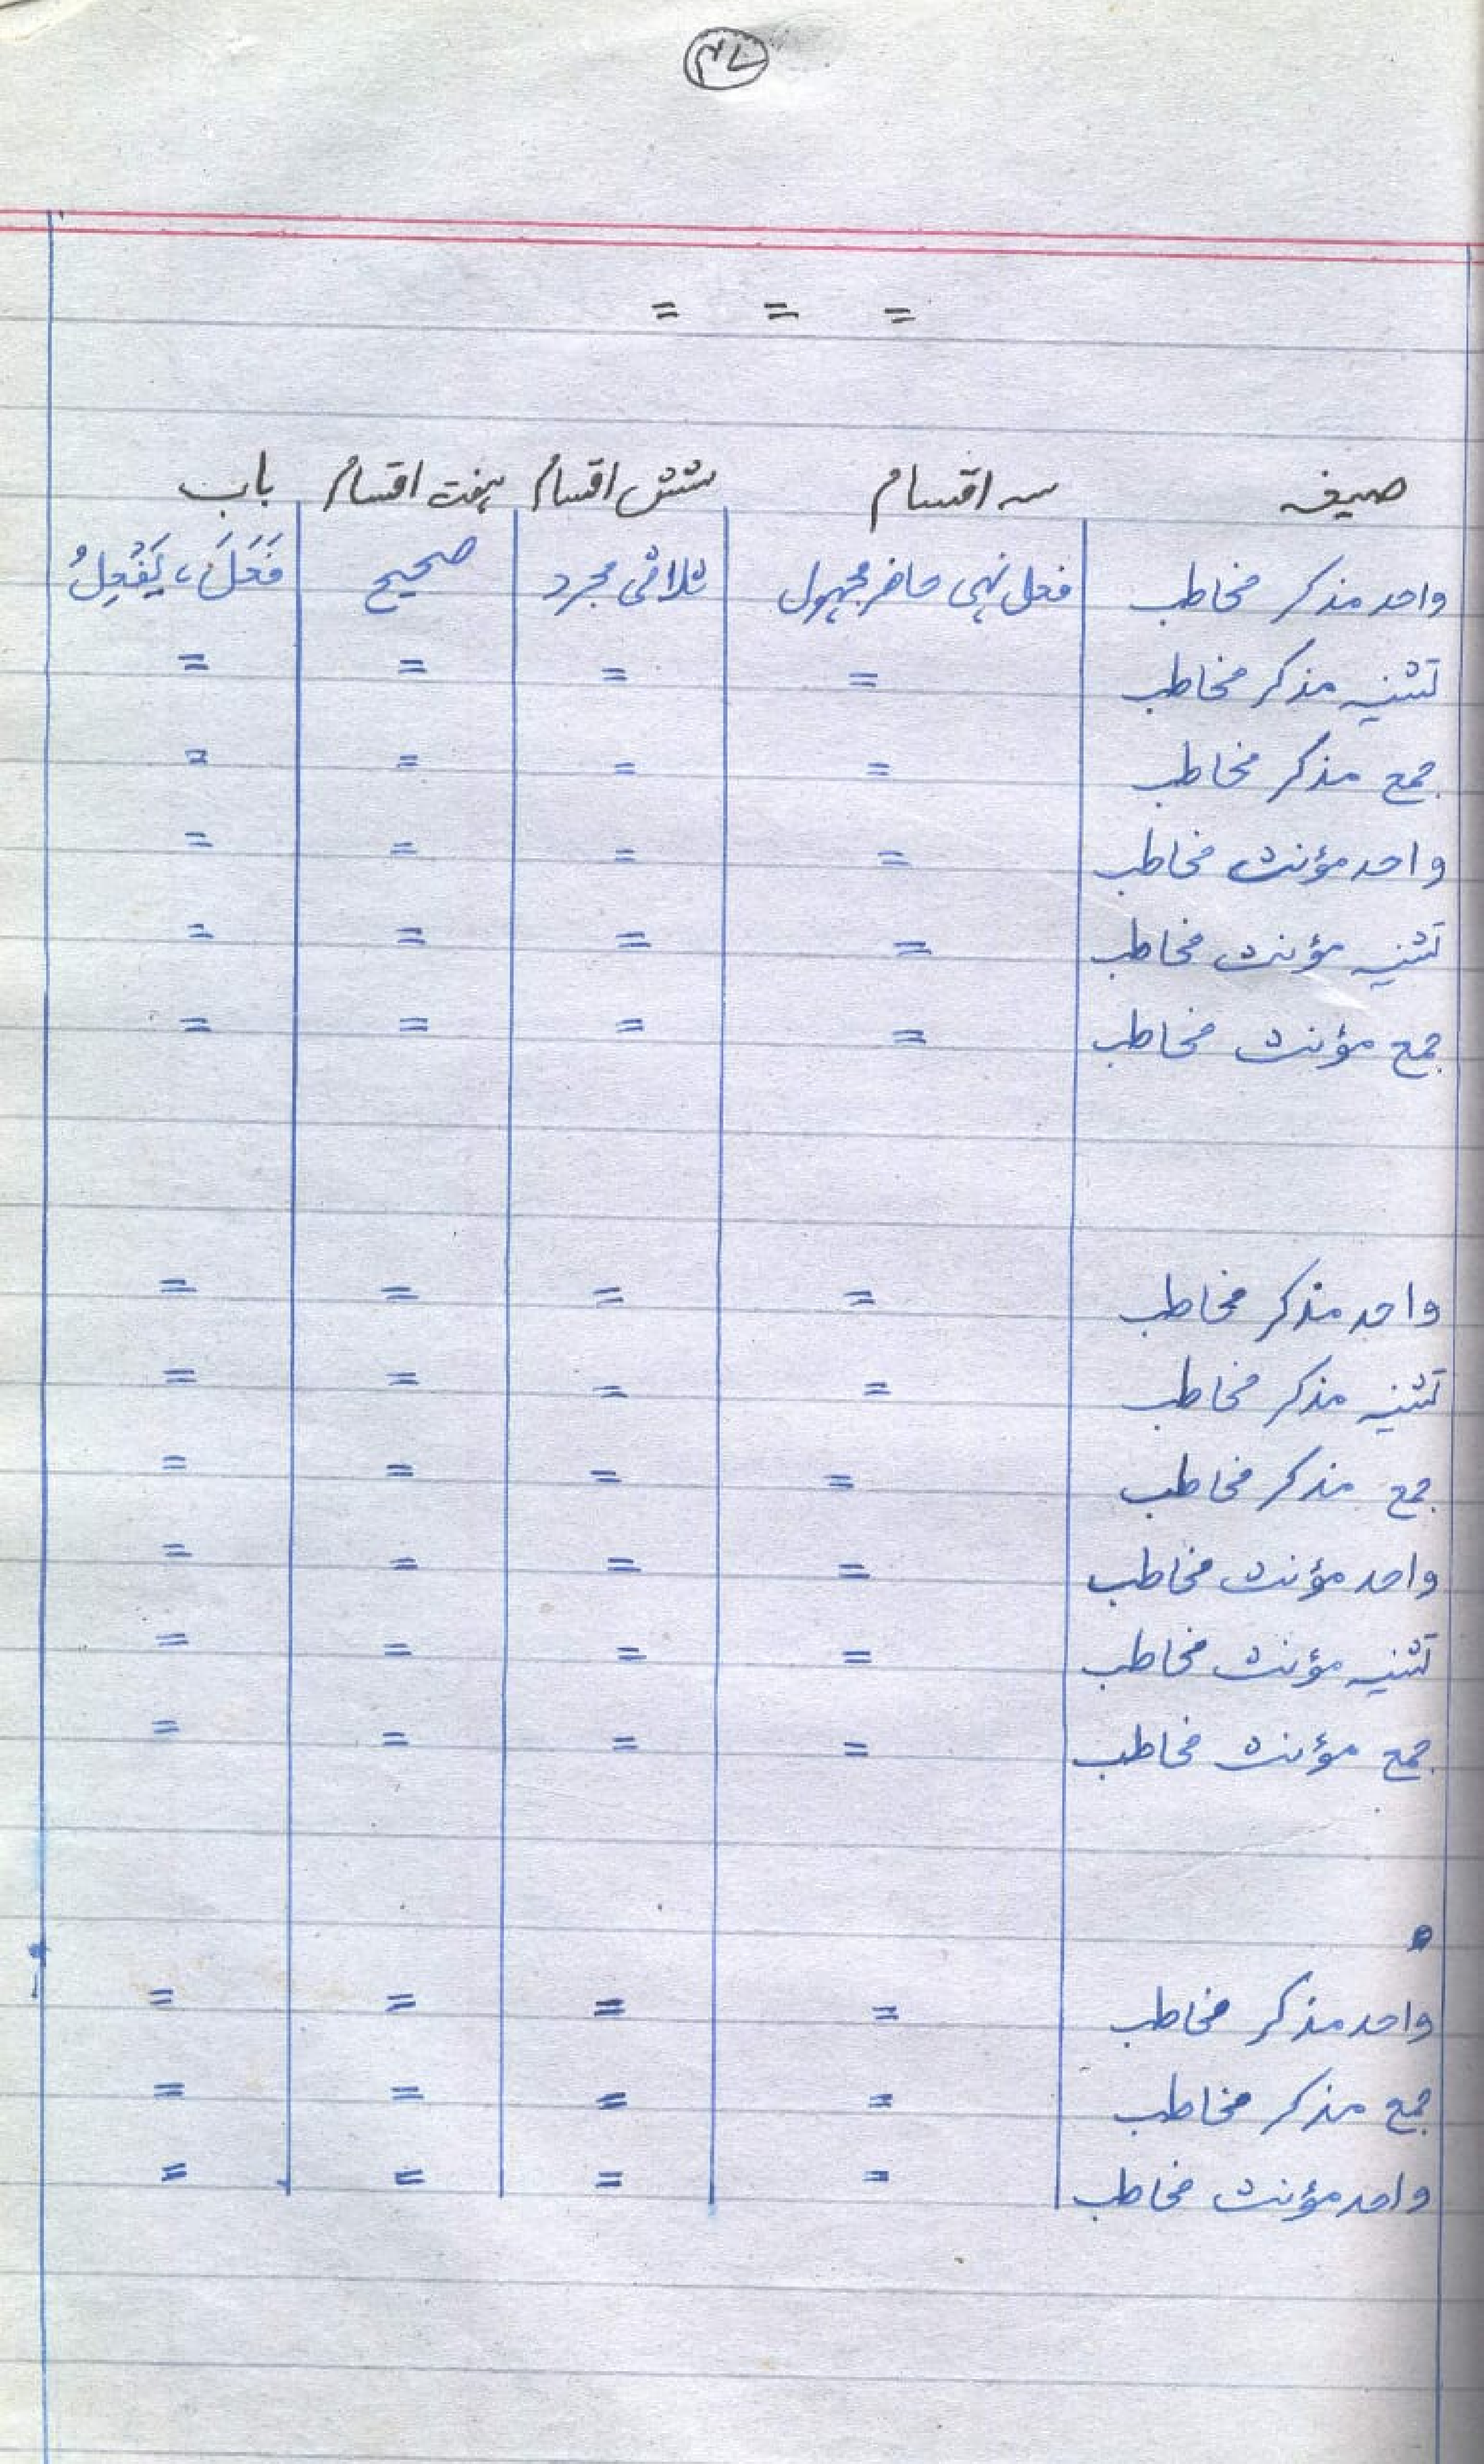 ۴۷
= = =
صیغہ سہ اقسام شش اقسام ہفت اقسام باب
واحد مذکر مخاطب فعل نہی حاضر مجہول ثلاثی مجرد صحیح فَعَلَ، یَفْعِلُ
تثنیہ مذکر مخاطب = = = =
جمع مذکر مخاطب = = = =
واحد مؤنث مخاطب = = = =
تثنیہ مؤنث مخاطب = = = =
جمع مؤنث مخاطب = = = =
واحد مذکر مخاطب = = = =
تثنیہ مذکر مخاطب = = = =
جمع مذکر مخاطب = = = =
واحد مؤنث مخاطب = = = =
تثنیہ مؤنث مخاطب = = = =
جمع مؤنث مخاطب = = = =
واحد مذکر مخاطب = = = =
جمع مذکر مخاطب = = = =
واحد مؤنث مخاطب = = = =